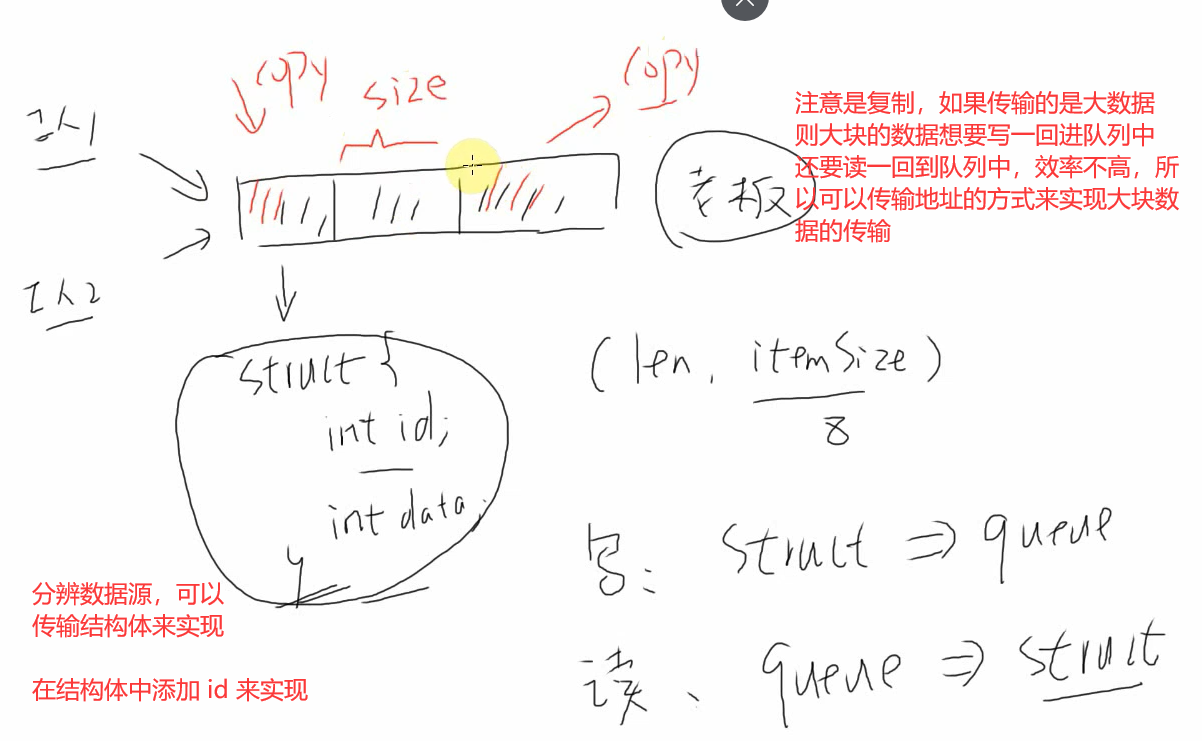 copy
size
copy
工人1
注意是复制，如果传输的是大数据
则大块的数据想要写一回进队列中
还要读一回到队列中，效率不高，所
以可以传输地址的方式来实现大块数
据的传输
老板
工人2
struct {
int id;
int data;
}
(len, itemSize)
8
写：struct ⇒ queue
读、queue ⇒ struct
分辨数据源，可以
传输结构体来实现
在结构体中添加 id 来实现